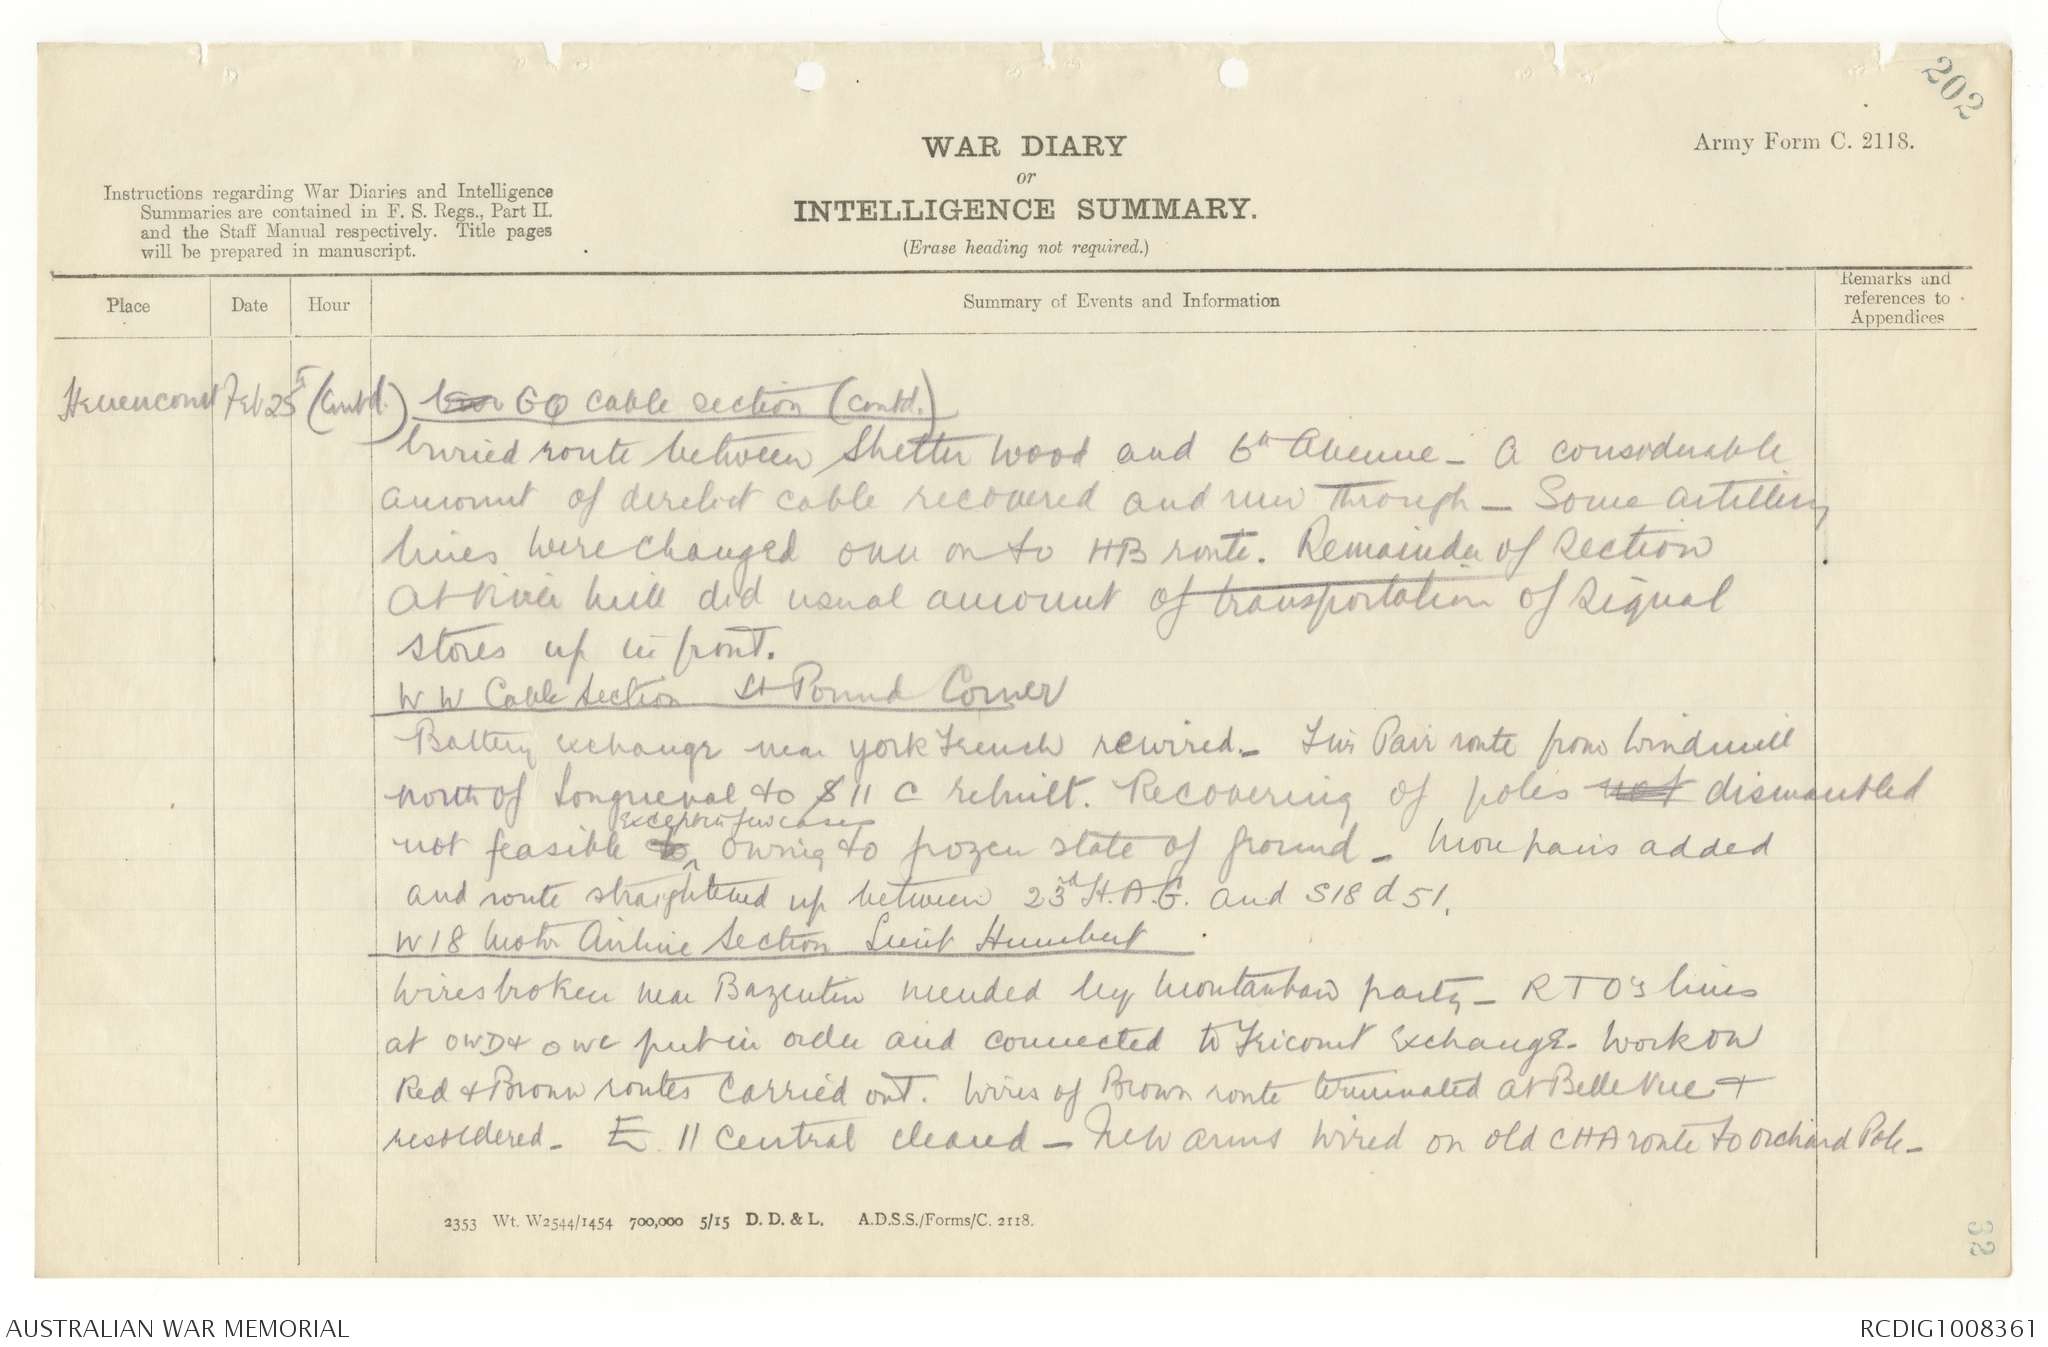 202
WAR DIARY
or
INTELLIGENCE SUMMARY.
(Erase heading not required.)
Army Form C. 2118.
Instructions regarding War Diaries and Intelligence
Summaries are contained in F. S. Regs., Part II.
and the Staff Manual respectively. Title pages
will be prepared in manuscript.
Place
Date
Hour
Summary of Events and Information
Remarks and
references to
Appendices
Henencourt Feb 25th (Contd.) GQ Cable section (contd.)
buried route between Shelter Wood and 6th Avenue - A considerable
amount of derelict cable recovered and run through - Some artillery
lines were changed over on to HB route. Remainder of section
at hill did usual amount of transportation of signal
stores up in front.
WW Cable Section Lt Pound Corner
Battery exchange near York Trench rewired - Pair route from Windmill
north of Longueval to S 11 c rebuilt. Recovering of poles not dismantled
except in few cases
not feasible to owing to frozen state of ground - More pairs added
and route straightened up between 23rd H.A.G. and S18 d 51.
W18 Motor Airline Section Lieut Humbert
Wires broken near Bazentin mended by Montauban party - RTO's lines
at OWD & OWC put in order and connected to Fricourt Exchange - Work on
Red & Brown routes carried out. Wires of Brown route terminated at Belle Vue &
resoldered - E. 11 Central cleared - New arms wired on old CHA route to Orchard Pole -
2353 Wt. W2544/1454 700,000 5/15 D. D. & L. A.D.S.S./Forms/C. 2118.
AUSTRALIAN WAR MEMORIAL
RCDIG1008361